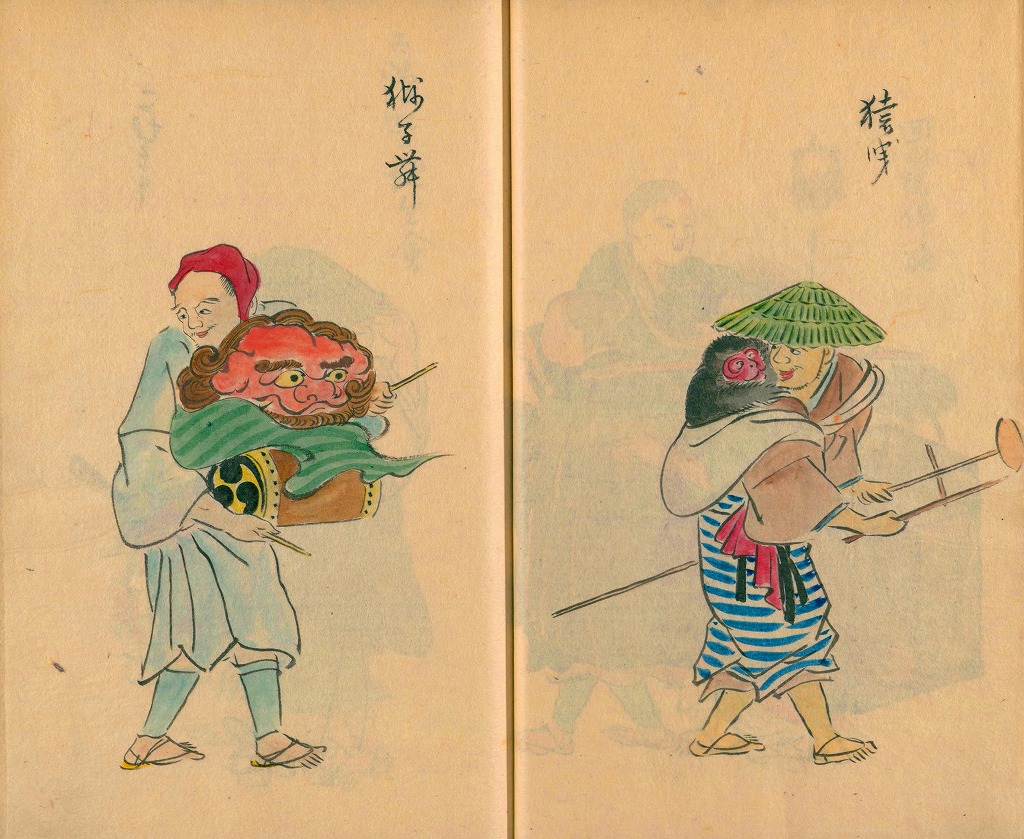 猿曵
獅子舞